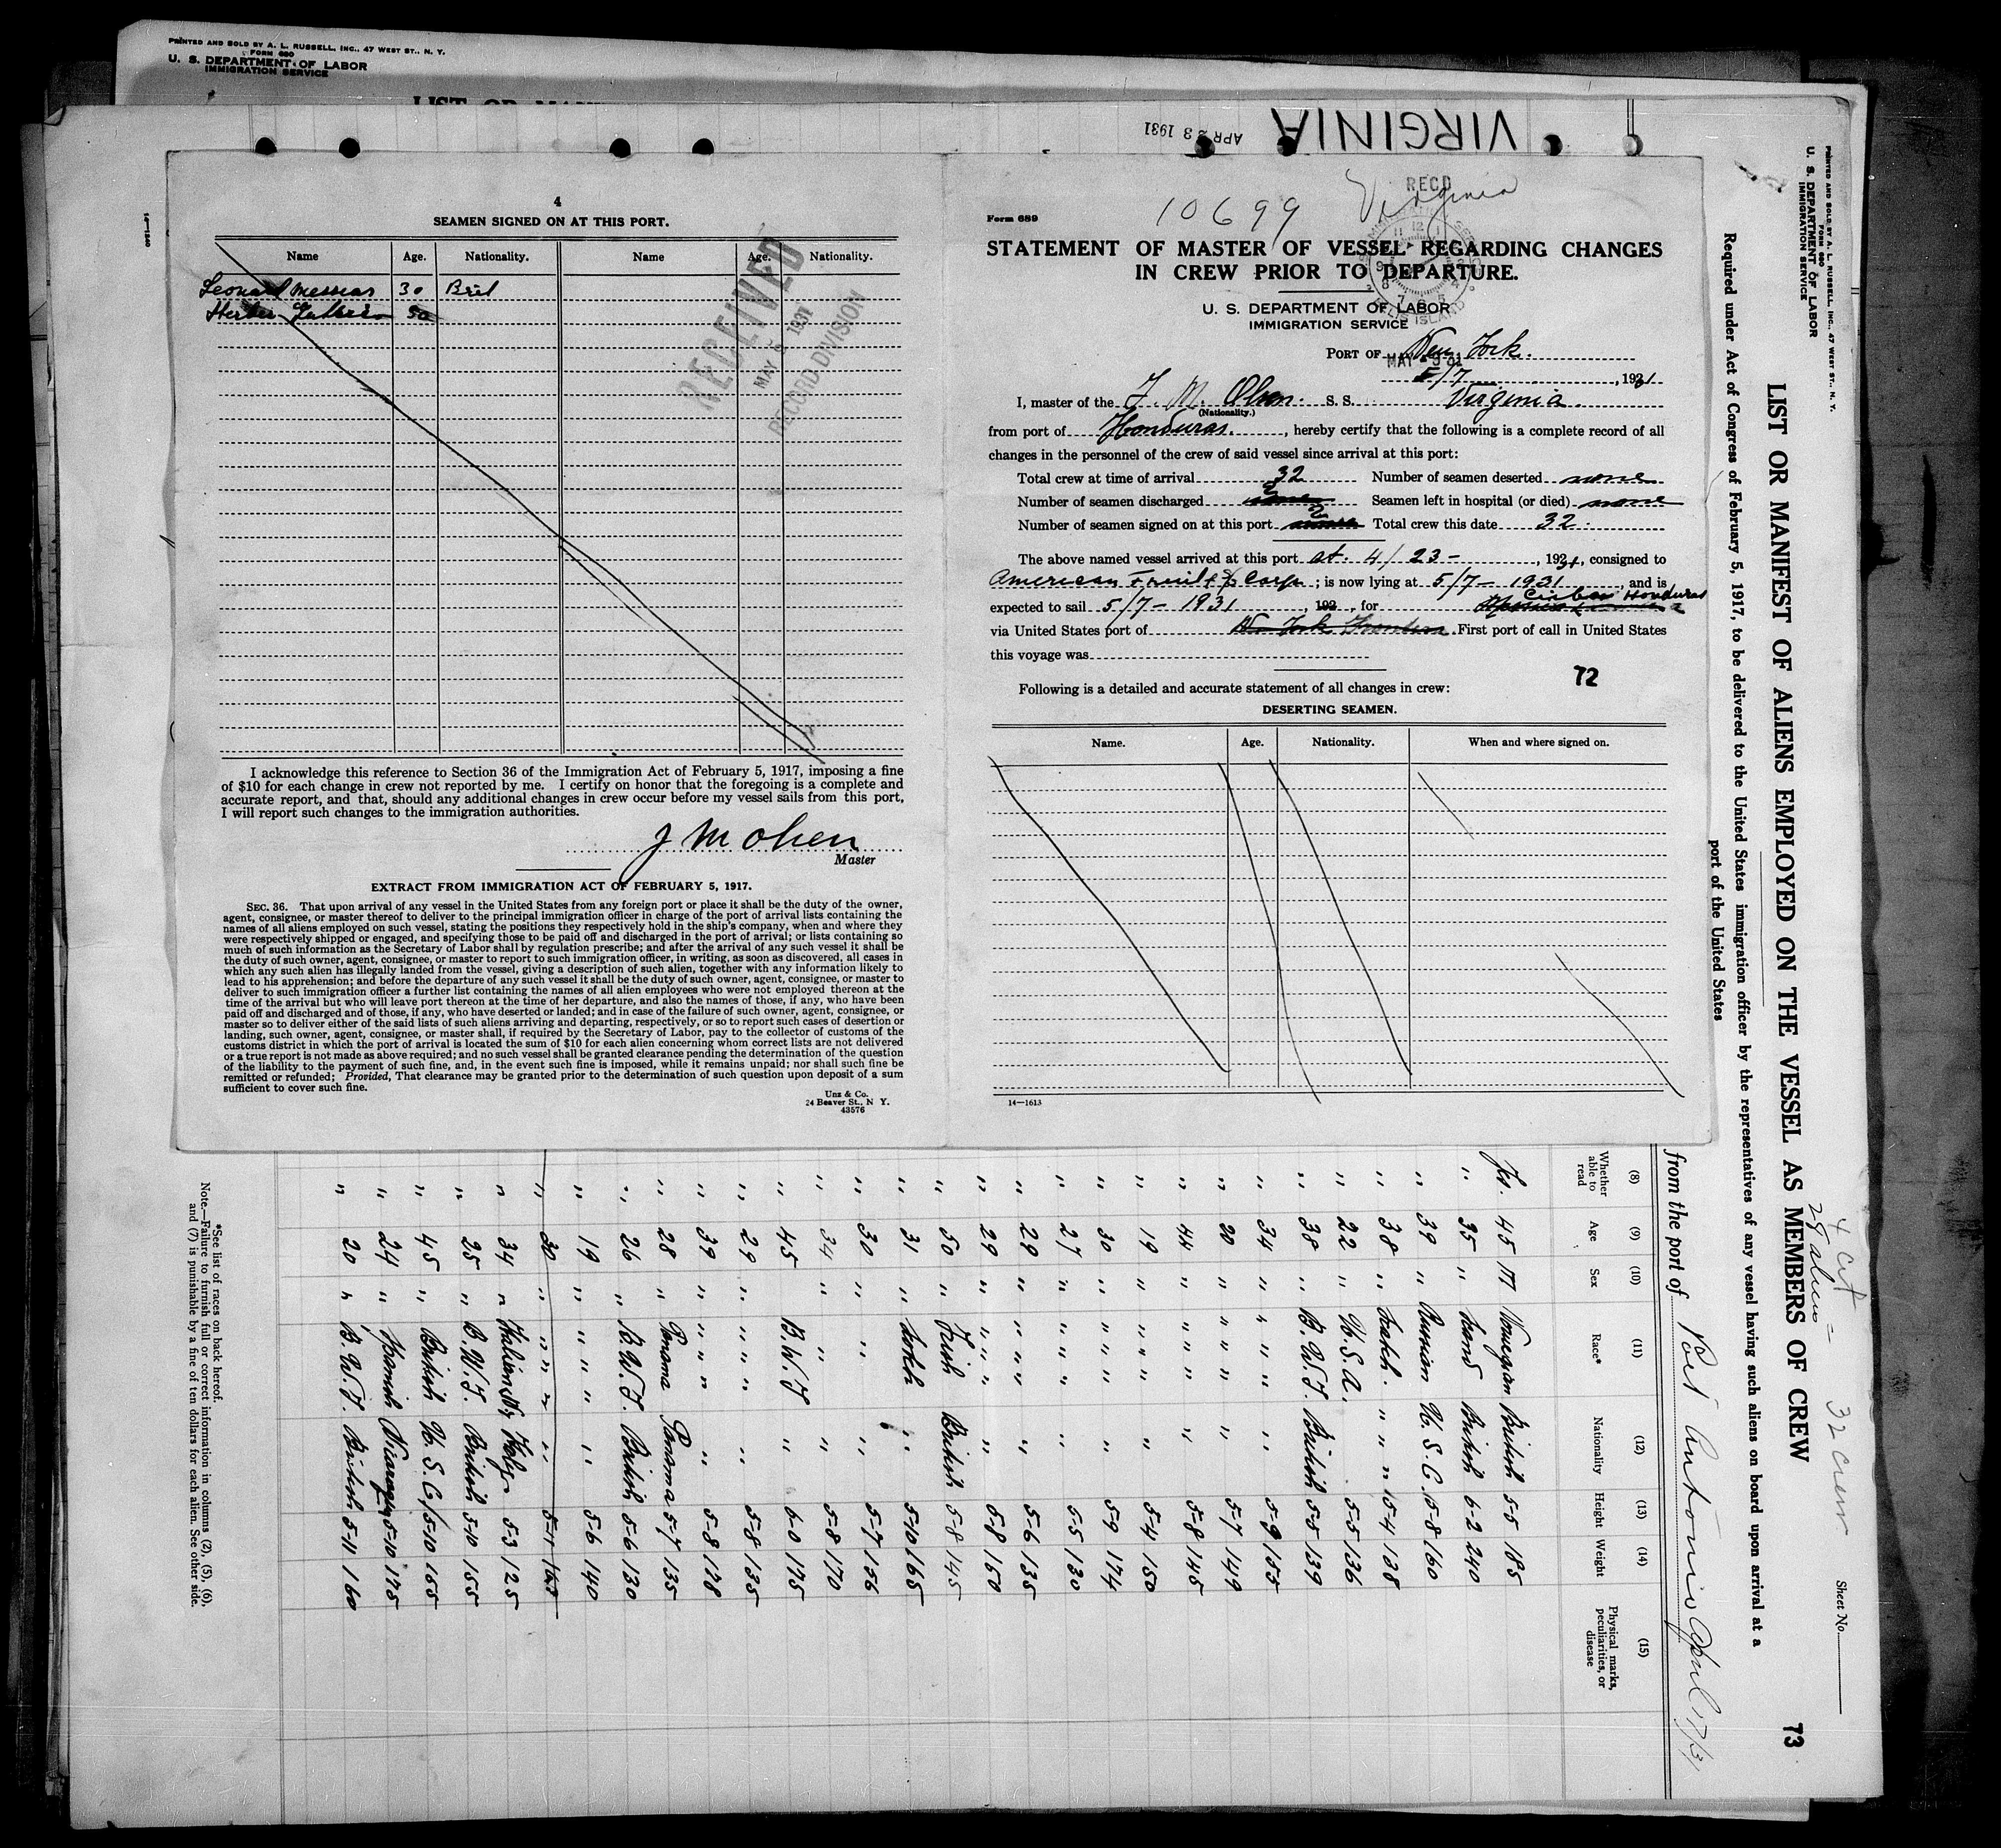 PRINTED AND SOLD BY A. L. RUSSELL, INC., 47 WEST ST., N. Y.
FORM 680
U. S. DEPARTMENT OF LABOR
IMMIGRATION SERVICE
VIRGINIA
APR 23 1931
14—1240
4
SEAMEN SIGNED ON AT THIS PORT.
Name Age. Nationality. Name Age. Nationality.
Leonard Messias 30 Brit
50
RECEIVED
MAY 1931
RECORD DIVISION
I acknowledge this reference to Section 36 of the Immigration Act of February 5, 1917, imposing a fine
of $10 for each change in crew not reported by me. I certify on honor that the foregoing is a complete and
accurate report, and that, should any additional changes in crew occur before my vessel sails from this port,
I will report such changes to the immigration authorities.
J M Olsen
Master
EXTRACT FROM IMMIGRATION ACT OF FEBRUARY 5, 1917.
SEC. 36. That upon arrival of any vessel in the United States from any foreign port or place it shall be the duty of the owner,
agent, consignee, or master thereof to deliver to the principal immigration officer in charge of the port of arrival lists containing the
names of all aliens employed on such vessel, stating the positions they respectively hold in the ship's company, when and where they
were respectively shipped or engaged, and specifying those to be paid off and discharged in the port of arrival; or lists containing so
much of such information as the Secretary of Labor shall by regulation prescribe; and after the arrival of any such vessel it shall be
the duty of such owner, agent, consignee, or master to report to such immigration officer, in writing, as soon as discovered, all cases in
which any such alien has illegally landed from the vessel, giving a description of such alien, together with any information likely to
lead to his apprehension; and before the departure of any such vessel it shall be the duty of such owner, agent, consignee, or master to
deliver to such immigration officer a further list containing the names of all alien employees who were not employed thereon at the
time of the arrival but who will leave port thereon at the time of her departure, and also the names of those, if any, who have been
paid off and discharged and of those, if any, who have deserted or landed; and in case of the failure of such owner, agent, consignee, or
master so to deliver either of the said lists of such aliens arriving and departing, respectively, or so to report such cases of desertion or
landing, such owner, agent, consignee, or master shall, if required by the Secretary of Labor, pay to the collector of customs of the
customs district in which the port of arrival is located the sum of $10 for each alien concerning whom correct lists are not delivered
or a true report is not made as above required; and no such vessel shall be granted clearance pending the determination of the question
of the liability to the payment of such fine, and, in the event such fine is imposed, while it remains unpaid; nor shall such fine be
remitted or refunded; Provided, That clearance may be granted prior to the determination of such question upon deposit of a sum
sufficient to cover such fine.
Unz & Co.
24 Beaver St., N Y.
43576
Form 689
10699 Virginia
RECD
ELLIS ISLAND
STATEMENT OF MASTER OF VESSEL REGARDING CHANGES
IN CREW PRIOR TO DEPARTURE.
U. S. DEPARTMENT OF LABOR
IMMIGRATION SERVICE
PORT OF New York.
5/7, 1931
I, master of the J. M. Olsen. S. S. Virginia.
(Nationality.)
from port of Honduras., hereby certify that the following is a complete record of all
changes in the personnel of the crew of said vessel since arrival at this port:
Total crew at time of arrival 32 Number of seamen deserted none
Number of seamen discharged 2 Seamen left in hospital (or died) none
Number of seamen signed on at this port 2 Total crew this date 32.
The above named vessel arrived at this port at 4/23-, 1931, consigned to
American Fruit & SS Corp; is now lying at 5/7-1931, and is
expected to sail 5/7-1931, 192, for Ceiba Honduras
via United States port of New York Frontera. First port of call in United States
this voyage was
72
Following is a detailed and accurate statement of all changes in crew:
DESERTING SEAMEN.
Name. Age. Nationality. When and where signed on.
14—1613
PRINTED AND SOLD BY A. L. RUSSELL, INC., 47 WEST ST., N. Y.
FORM 680
U. S. DEPARTMENT OF LABOR
IMMIGRATION SERVICE
4 cit
28 aliens = 32 crew
Sheet No.
73
LIST OR MANIFEST OF ALIENS EMPLOYED ON THE VESSEL AS MEMBERS OF CREW
Required under Act of Congress of February 5, 1917, to be delivered to the United States immigration officer by the representatives of any vessel having such aliens on board upon arrival at a
port of the United States
from the port of Port Antonio April 17/31
(8) (9) (10) (11) (12) (13) (14) (15)
Whether able to read Age Sex Race* Nationality Height Weight Physical marks, peculiarities, or disease
Yes. 45 M Norwegian British 5-5 185
" 35 " Scand British 6-2 240
" 39 " Russian U. S. C. 5-8 160
" 38 " " " 5-4 138
" 22 " U. S. A. 5-5 136
" 38 " B. W. I. British 5-5 139
" 34 " " " 5-9 155
" 20 " " " 5-7 149
" 44 " " " 5-8 145
" 19 " " " 5-4 150
" 30 " " " 5-9 174
" 27 " " " 5-5 130
" 28 " " " 5-6 135
" 29 " " " 5-8 150
" 50 " Irish British 5-8 145
" 31 " " 5-10 165
" 30 " " " 5-7 156
" 34 " " " 5-8 170
" 45 B. W. I " 6-0 175
" 29 " " " 5-8 135
" 39 " " " 5-8 178
" 28 " Panama Panama 5-7 135
" 26 " B. W. I. British 5-6 130
" 19 " " " 5-6 140
" 30 " " " 5-11 163
" 34 " Italian Italy 5-3 125
" 25 " B. W. I. British 5-10 155
" 45 " British U. S. C 5-10 155
" 24 " Spanish Nicaragua 5-10 175
" 20 " B. W. I. British 5-11 160
*See list of races on back hereof.
Note.—Failure to furnish full or correct information in columns (2), (5), (6),
and (7) is punishable by a fine of ten dollars for each alien. See other side.